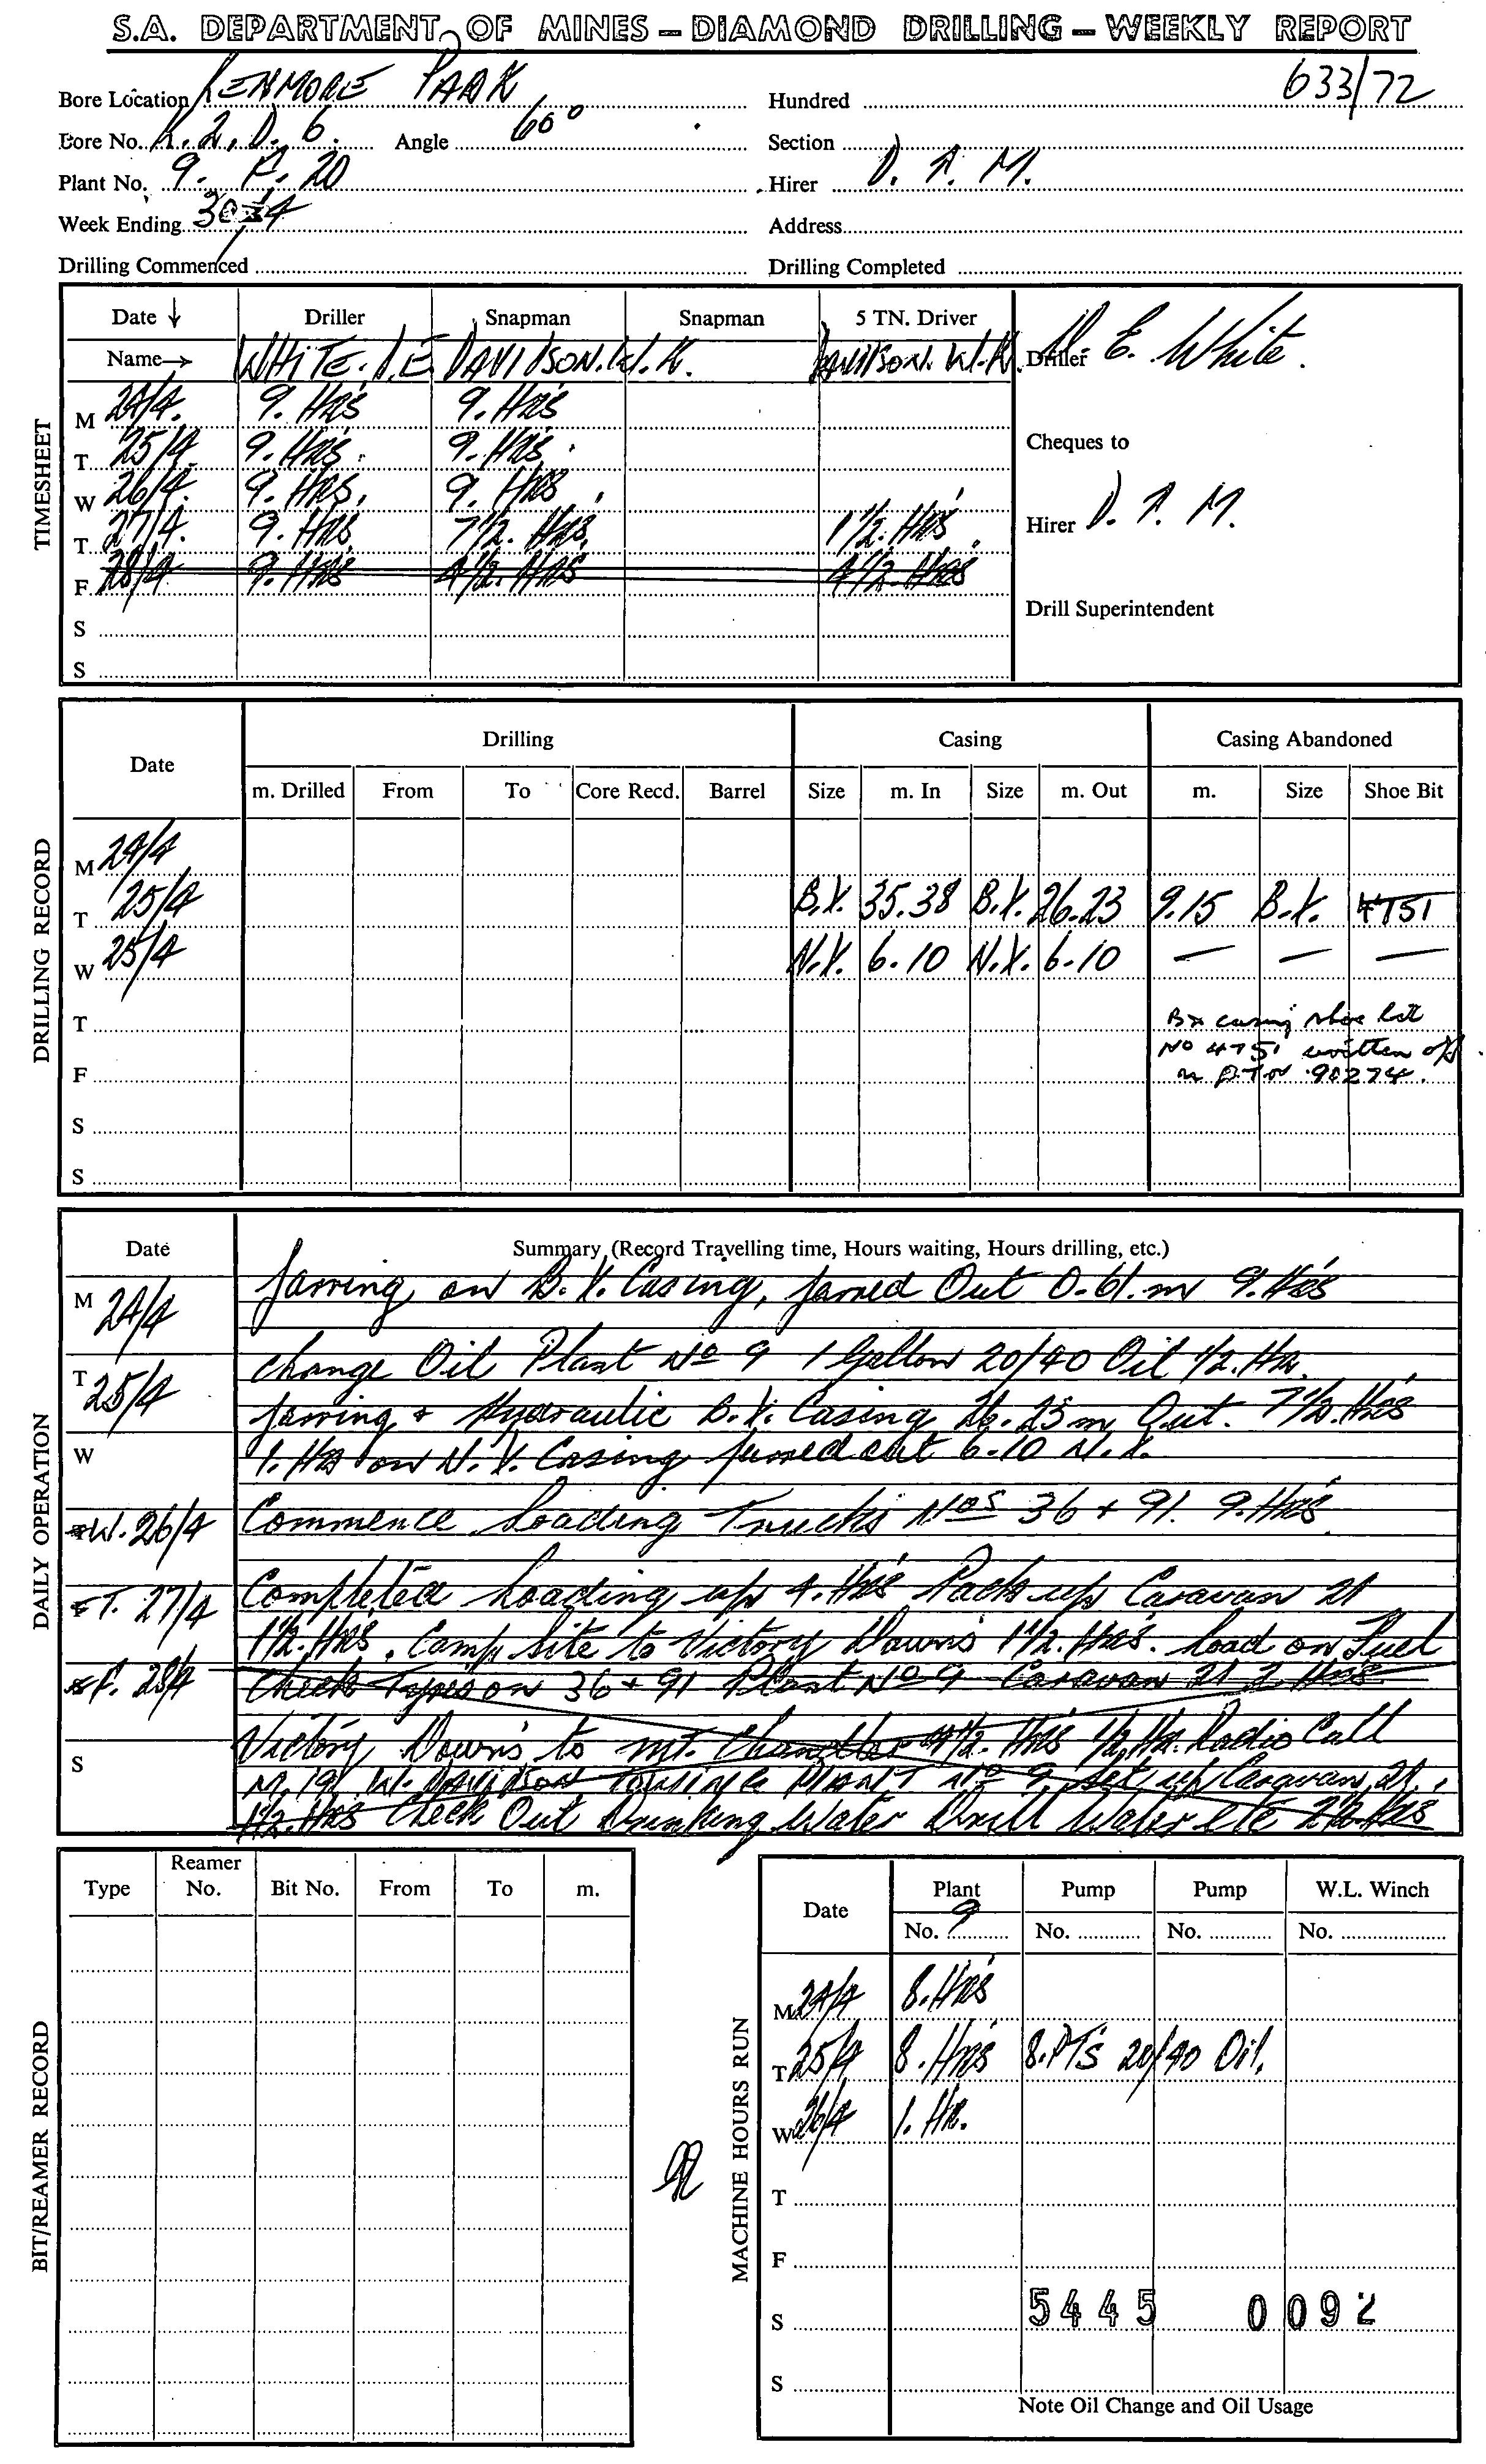 S.A. DEPARTMENT OF MINES – DIAMOND DRILLING – WEEKLY REPORT
633/72
Bore Location KENMORE PARK Hundred
Bore No. K.2.D.6. Angle 60° Section
Plant No. 9. F. 20 Hirer D. T. M.
Week Ending 30/4 Address
Drilling Commenced Drilling Completed
TIMESHEET
Date ↓ Driller Snapman Snapman 5 TN. Driver
Name→ WHITE. D.E DAVIDSON.W.K. DAVIDSON. W.K. Driller D. E. White.
M 24/4. 9. HRS 9. HRS
T 25/4. 9. HRS. 9. HRS. Cheques to
W 26/4. 9. HRS. 9. HRS
T 27/4. 9. HRS 7½. HRS. 1½. HRS. Hirer D. T. M.
F 28/4 9. HRS 4½. HRS 4½. HRS
Drill Superintendent
S
S
DRILLING RECORD
Date Drilling Casing Casing Abandoned
m. Drilled From To Core Recd. Barrel Size m. In Size m. Out m. Size Shoe Bit
M 24/4
T 25/4 B.X. 35.38 B.X. 26.23 9.15 B.X. 4751
W 25/4 N.X. 6.10 N.X. 6.10 — — —
T Bx casing shoe bit
No 4751 written off
F 90274.
S
S
DAILY OPERATION
Date Summary (Record Travelling time, Hours waiting, Hours drilling, etc.)
M 24/4 Jarring on B.X. Casing, jarred Out 0.61.m 9. Hrs
T 25/4 Change Oil Plant No 9 1 Gallon 20/40 Oil ½. Hr.
Jarring + Hydraulic B.X. Casing 26.23m Out. 7½. Hrs
W 1. Hr on N.X. Casing jarred out 6.10 N.X.
W. 26/4 Commence Loading Trucks Nos 36 + 91. 9. Hrs.
T. 27/4 Completed Loading up 4. Hrs Pack up Caravan 21
1½. Hrs. Camp Site to Victory Downs 1½. Hrs. Load on Fuel
F. 28/4 Check Tyres on 36 + 91 Plant No 9 Caravan 21 2 Hrs.
Victory Downs to Mt. Chandler 4½. Hrs ½. Hr. Radio Call
S W. DAVIDSON TOWING PLANT No 9, Set up Caravan 21.
1½. Hrs Check Out Drinking Water Drill Water etc 2½. Hrs
BIT/REAMER RECORD
Type Reamer No. Bit No. From To m.
MACHINE HOURS RUN
Date Plant Pump Pump W.L. Winch
No. 9 No. No. No.
M 24/4 8. Hrs
T 25/4 8. Hrs 8. PTS 20/40 Oil.
W 26/4 1. Hr.
T
F
S 5445 0092
S
Note Oil Change and Oil Usage